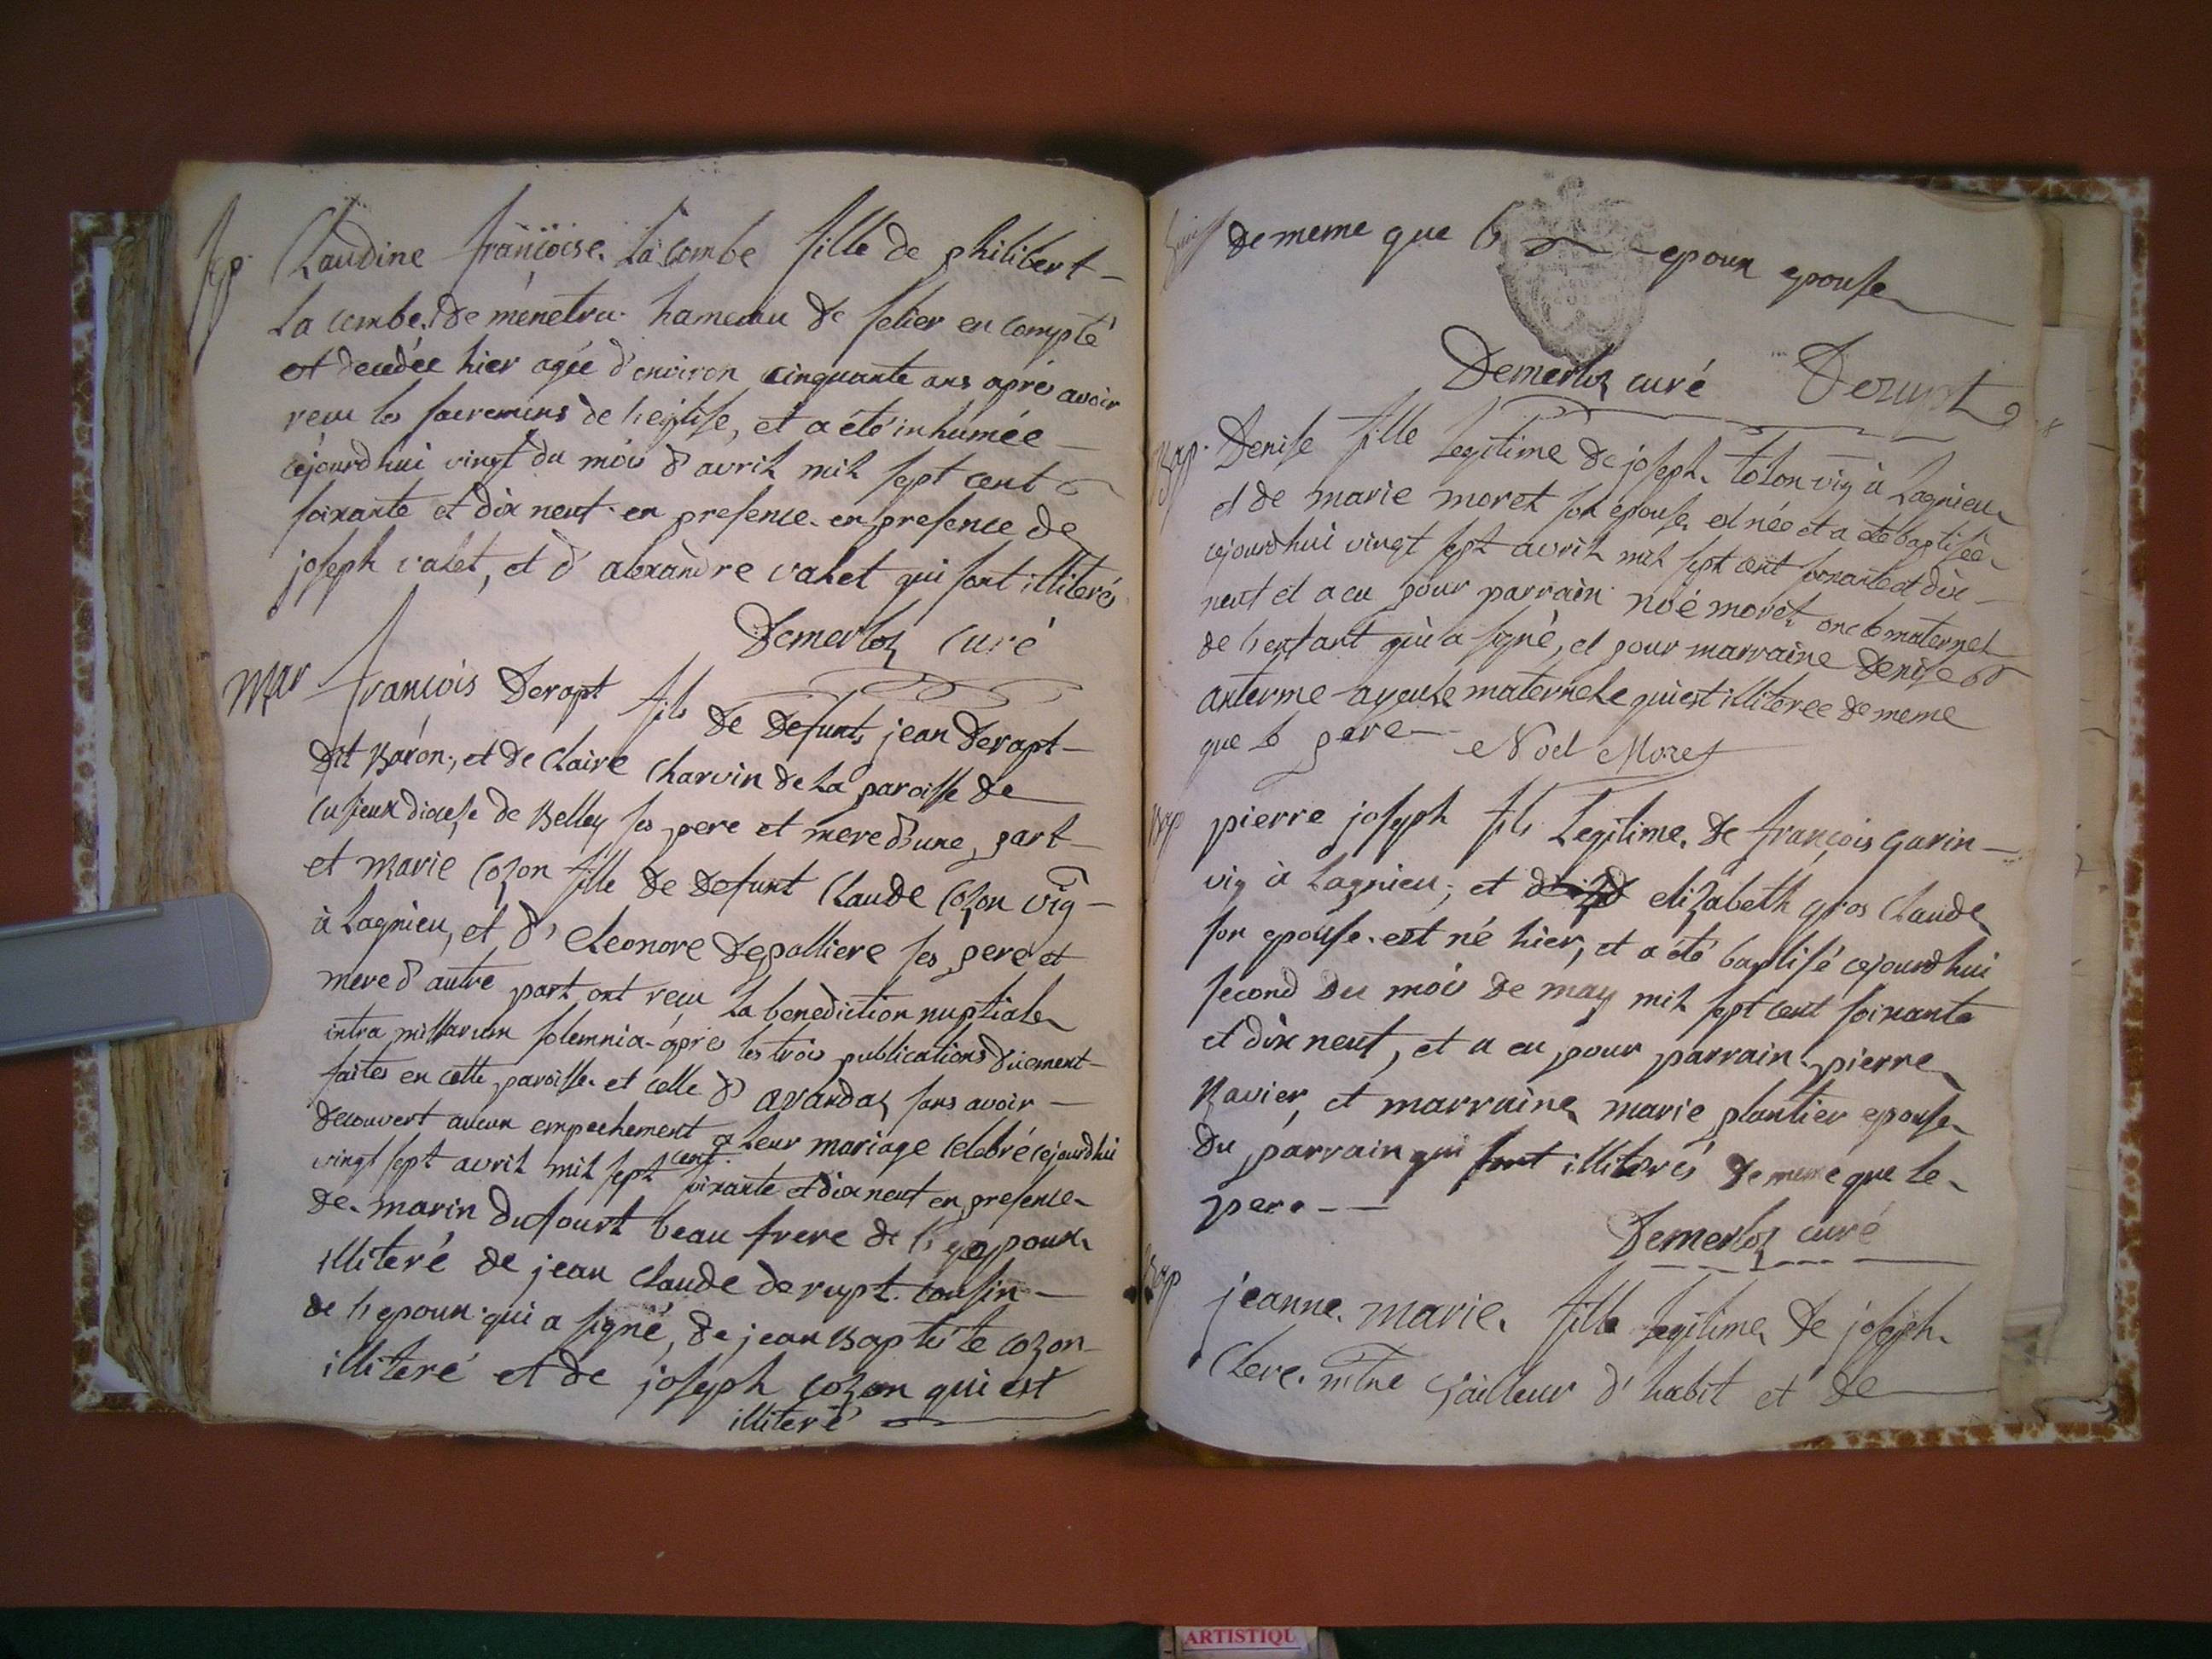 Sep. Claudine françoise. La combe fille de philibert
La combe. de ménetru. hameau de selier en compté
est decedée hier agée d'environ cinquante ans aprés avoir
recu les sacremens de l'eglise, et a été inhumée
cejourdhui vingt du mois d'avril mil sept cent
soixante et dix neuf. en presence. en presence de
joseph valet, et d'alexandre valet qui sont illiterés
Demerloz curé
Mar françois Derapt fils de defunts jean Derapt
dit Baron, et de Claire Charvin de la paroisse de
Cusieux diocese de Belley ses pere et mere d'une part
et Marie Cozon fille de defunt Claude Cozon vig
à Lagnieu, et d'eleonore Depalliere ses pere et
mere d'autre part ont recu la benediction nuptiale
intra missarum solemnia aprés les trois publications duement
faites en cette paroisse. et celle d' sans avoir
decouvert aucun empechement a leur mariage celebré cejourdhui
vingt sept avril mil sept cent soixante et dix neuf en presence
de. marin dufourt beau frere de l'epoux
illiteré de jean Claude derupt. cousin
de l'epoux. qui a signé, de jean Baptiste cozon
illiteré et de joseph cozon qui est
illiteré
de meme que l' epoux epouse
Demerloz curé Derupt
Bap. Denise fille Legitime de joseph. tolon vig à Lagnieu
et de marie moret son epouse est née et a eté baptisée
cejourdhui vingt sept avril mil sept cent soixante et dix
neuf et a eu pour parrain noé moret oncle maternel
de l'enfant qui a signé, et pour marraine denise
anterme ayeule maternele qui est illiterée de meme
que le pere Noel Moret
Bap pierre joseph fils Legitime. de françois garin
vig à Lagnieu, et elizabeth gros Claude
son epouse. est né hier, et a été baptisé cejourdhui
second du mois de may mil sept cent soixante
et dix neuf, et a eu pour parrain. pierre
Ravier, et marraine marie plantier epouse
du parrain qui sont illiterés de meme que le
pere
Demerloz curé
Bap jeanne. marie. fille legitime de joseph.
Clere. mtre tailleur d'habit et de
ARTISTIQU